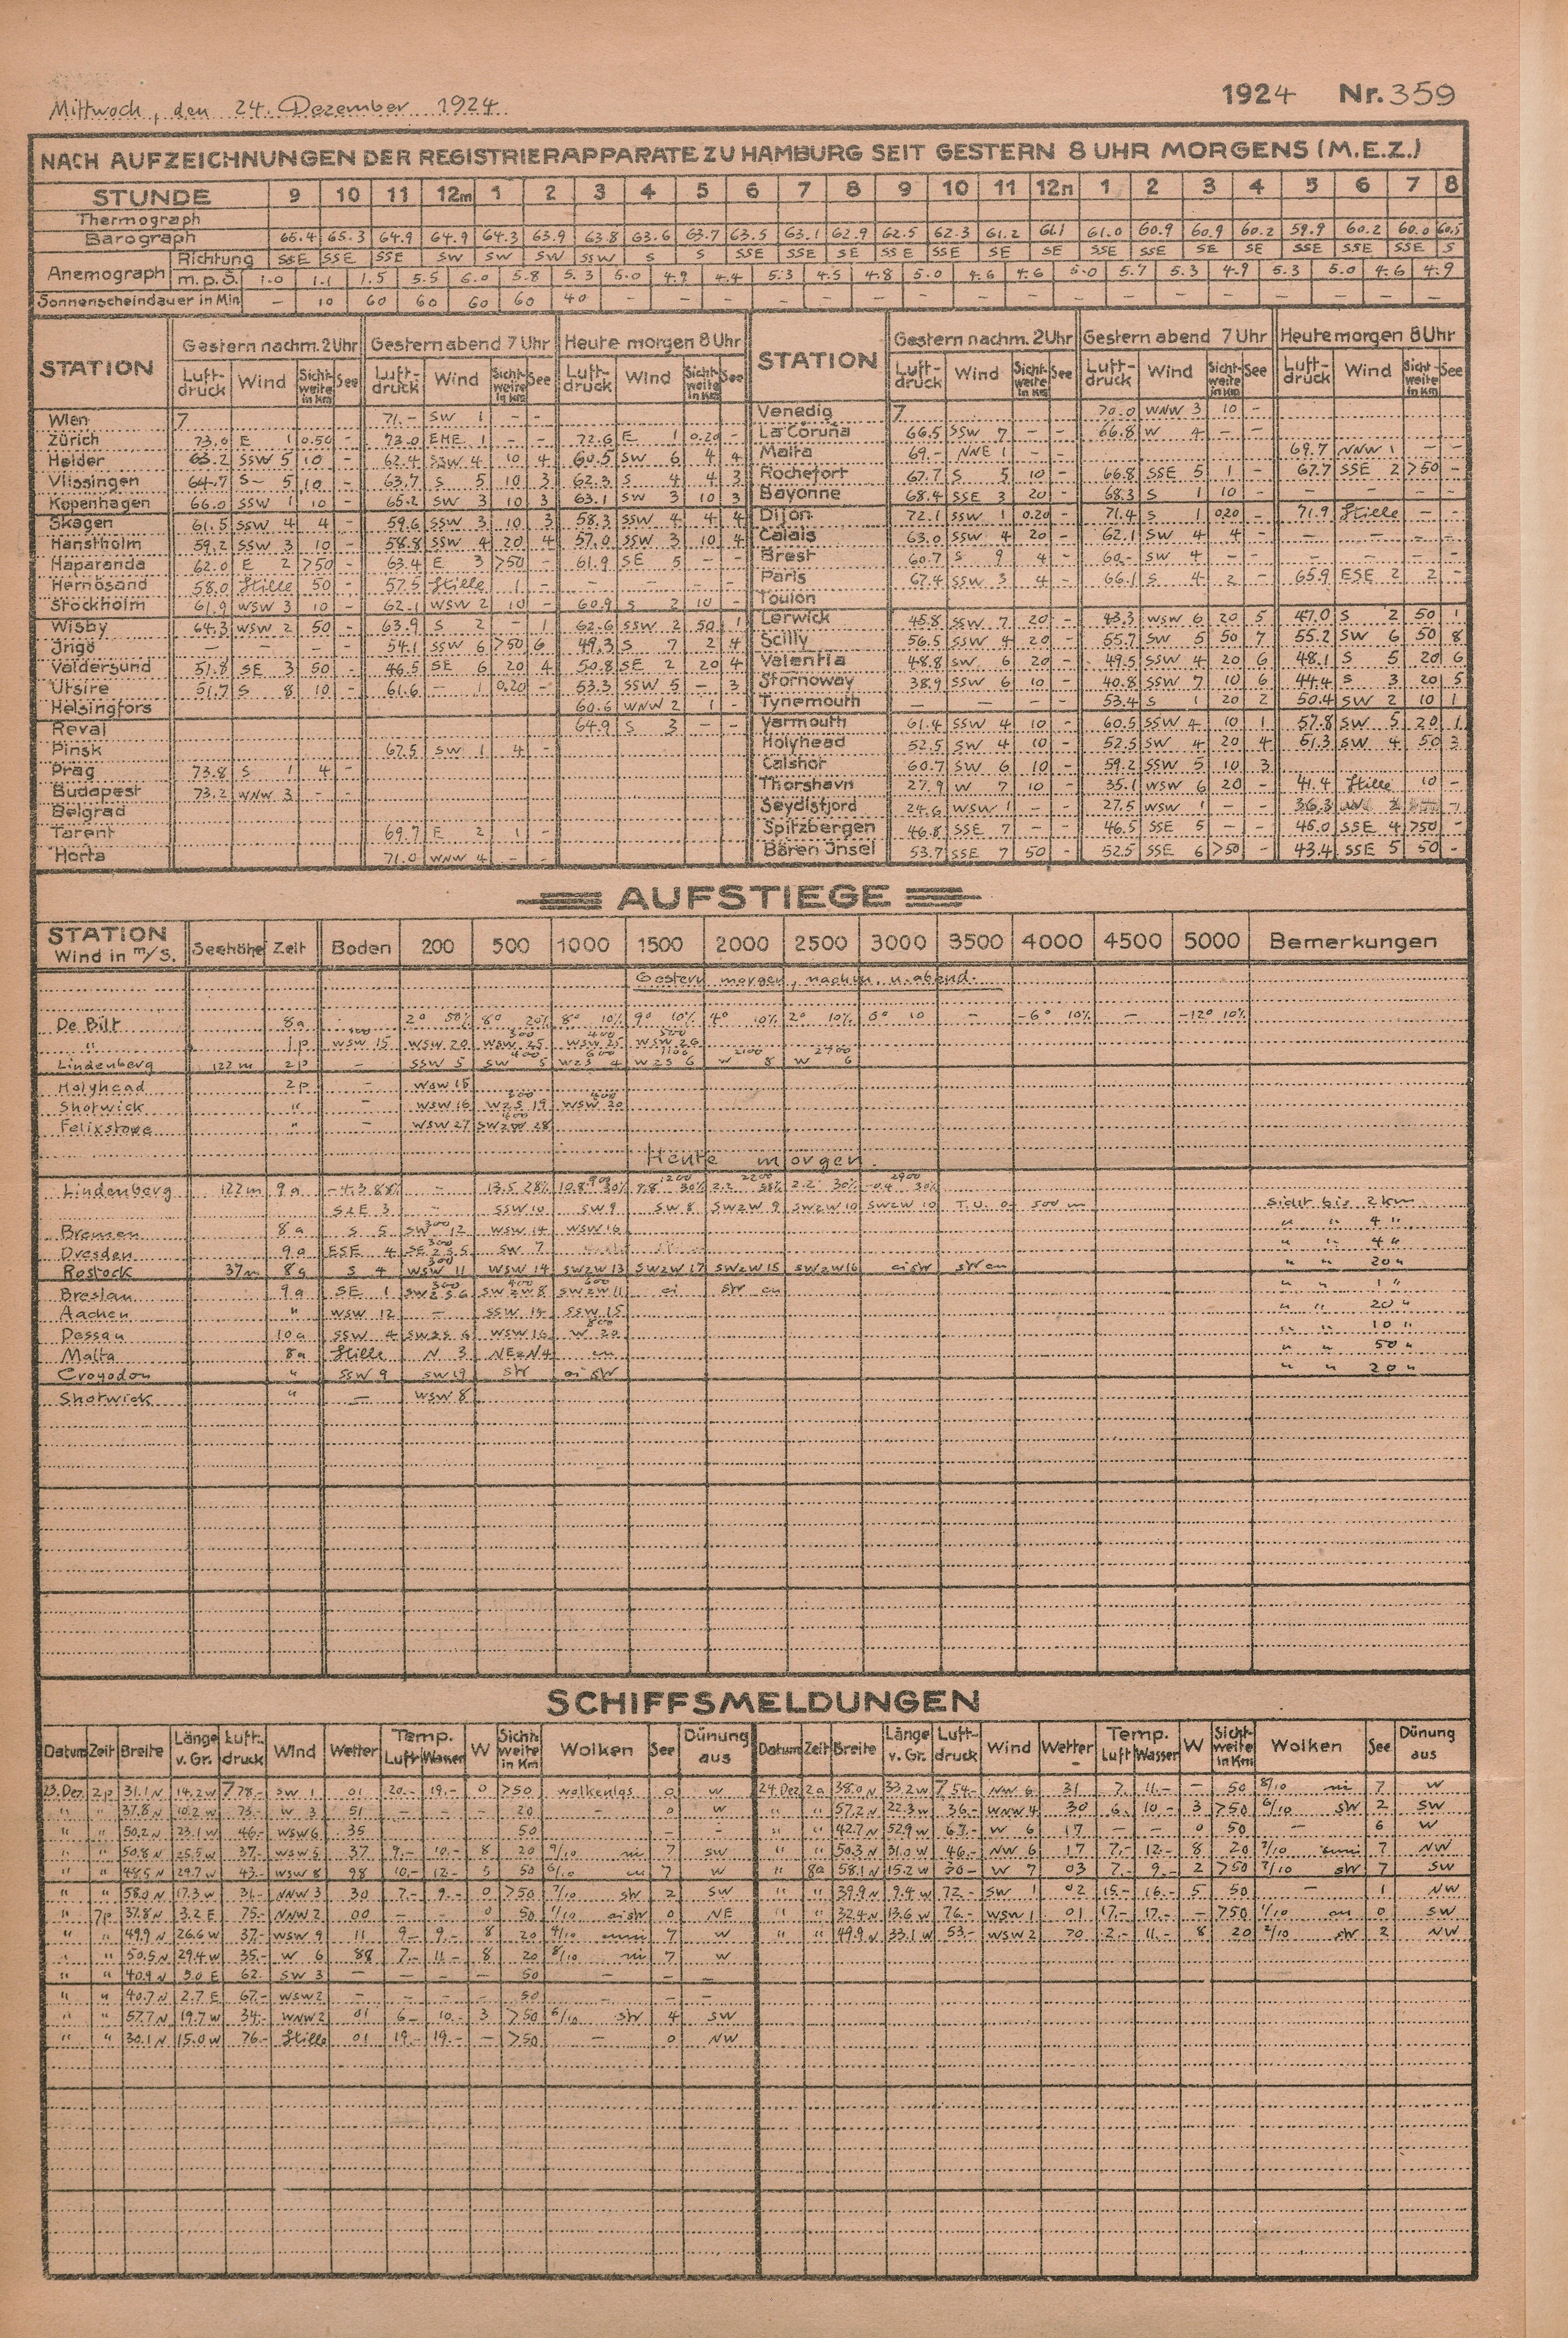 Mittwoch, den 24. Dezember 1924 1924 Nr. 359
NACH AUFZEICHNUNGEN DER REGISTRIERAPPARATE ZU HAMBURG SEIT GESTERN 8 UHR MORGENS (M.E.Z.)
STUNDE 9 10 11 12m 1 2 3 4 5 6 7 8 9 10 11 12n 1 2 3 4 5 6 7 8
Thermograph
Barograph 65.4 65.3 64.9 64.9 64.3 63.9 63.8 63.6 63.7 63.5 63.1 62.9 62.5 62.3 61.2 61.1 61.0 60.9 60.9 60.2 59.9 60.2 60.0 60.5
Anemograph Richtung SSE SSE SSE SW SW SW SSW S S SSE SSE SE SE SE SE SE SSE SSE SE SE SSE SSE SSE S
m.p.S. 1.0 1.1 1.5 5.5 6.0 5.8 5.3 5.0 4.9 4.4 5.3 4.5 4.8 5.0 4.6 4.6 5.0 5.7 5.3 4.9 5.3 5.0 4.6 4.9
Sonnenscheindauer in Min – 10 60 60 60 60 40 – – – – – – – – – – – – – – – – –
STATION Gestern nachm. 2 Uhr Gestern abend 7 Uhr Heute morgen 8 Uhr STATION Gestern nachm. 2 Uhr Gestern abend 7 Uhr Heute morgen 8 Uhr
Luft-druck Wind Sicht-weite in Km See Luft-druck Wind Sicht-weite in Km See Luft-druck Wind Sicht-weite in Km See Luft-druck Wind Sicht-weite in Km See Luft-druck Wind Sicht-weite in Km See Luft-druck Wind Sicht-weite in Km See
Wien 7 71.– SW 1 – – Venedig 7 70.0 WNW 3 10 –
Zürich 73.0 E 1 0.50 – 73.0 ENE 1 – – 72.6 E 1 0.20 – La Coruña 66.5 SSW 7 – – 66.8 W 4 – –
Helder 63.2 SSW 5 10 – 62.4 SSW 4 10 4 60.5 SW 6 4 4 Malta 69.– NNE 1 – 69.7 NNW 1 – –
Vlissingen 64.7 S – 5 10 – 63.7 S 5 10 3 62.3 S 4 4 3 Rochefort 67.7 S 5 10 – 66.8 SSE 5 1 – 67.7 SSE 2 >50 –
Kopenhagen 66.0 SSW 1 10 – 65.2 SW 3 10 3 63.1 SW 3 10 3 Bayonne 68.4 SSE 3 20 – 68.3 S 1 10 – – – – –
Skagen 61.5 SSW 4 4 – 59.6 SSW 3 10 3 58.3 SSW 4 4 4 Dijon 72.1 SSW 1 0.20 – 71.4 S 1 0.20 – 71.9 Stille – –
Hanstholm 59.2 SSW 3 10 – 58.8 SSW 4 20 4 57.0 SSW 3 10 4 Calais 63.0 SSW 4 20 – 62.1 SW 4 4 – – – – –
Haparanda 62.0 E 2 >50 – 63.4 E 3 >50 – 61.9 SE 5 – – Brest 60.7 S 9 4 – 60.– SW 4 – – – – – –
Hernösand 58.0 Stille 50 – 57.5 Stille 1 – – – – – Paris 67.4 SSW 3 4 – 66.1 S 4 2 – 65.9 ESE 2 2 –
Stockholm 61.9 WSW 3 10 – 62.1 WSW 2 10 – 60.9 S 2 10 – Toulon
Wisby 64.3 WSW 2 50 – 63.9 S 2 – 1 62.6 SSW 2 50 1 Lerwick 45.8 SSW 7 20 – 43.3 WSW 6 20 5 47.0 S 2 50 1
Ingö – – – – 54.1 SSW 6 >50 6 49.3 S 7 2 4 Scilly 56.5 SSW 4 20 – 55.7 SW 5 50 7 55.2 SW 6 50 8
Valdersund 51.8 SE 3 50 – 46.5 SE 6 20 4 50.8 SE 2 20 4 Valentia 48.8 SW 6 20 – 49.5 SSW 4 20 6 48.1 S 5 20 6
Utsire 51.7 S 8 10 – 61.6 – 1 0.20 – 53.3 SSW 5 – 3 Stornoway 38.9 SSW 6 10 – 40.8 SSW 7 10 6 44.4 S 3 20 5
Helsingfors 60.6 WNW 2 1 – Tynemouth – – – – 53.4 S 1 20 2 50.4 SW 2 10 1
Reval 64.9 S 3 – – Yarmouth 61.4 SSW 4 10 – 60.5 SSW 4 10 1 57.8 SW 5 20 1
Pinsk 67.5 SW 1 4 – Holyhead 52.5 SW 4 10 – 52.5 SW 4 20 4 51.3 SW 4 50 3
Prag 73.8 S 1 4 – Calshot 60.7 SW 6 10 – 59.2 SSW 5 10 3
Budapest 73.2 WNW 3 – – Thorshavn 27.9 W 7 10 – 35.1 WSW 6 20 – 41.4 Stille 10 –
Belgrad Seydisfjord 24.6 WSW 1 – – 27.5 WSW 1 – – 36.3
Tarent 69.7 E 2 1 – Spitzbergen 46.8 SSE 7 – – 46.5 SSE 5 – – 45.0 SSE 4 >50 –
Horta 71.0 WNW 4 – – Bären Insel 53.7 SSE 7 50 – 52.5 SSE 6 >50 – 43.4 SSE 5 50 –
AUFSTIEGE
STATION Wind in m/s. Seehöhe Zeit Boden 200 500 1000 1500 2000 2500 3000 3500 4000 4500 5000 Bemerkungen
Gestern morgen, nachm. u. abend.
De Bilt 8a 2° 50% 8° 20% 8° 10% 9° 10% 4° 10% 2° 10% 0° 10 – -6° 10% – -12° 10%
" 1p WSW 15 WSW 20 WSW 25 WSW 25 WSW 26
Lindenberg 122 m 2p – SSW 5 SW 5 WzS 4 WzS 6 W 8 W 6
Holyhead 2p – WSW 15
Shotwick " – WSW 16 WzS 19 WSW 20
Felixstowe " – WSW 27 28
Heute morgen.
Lindenberg 122 m 9a – 13.5 28% 10.8 30% 30% 2.2 2.2 30%
SzE 3 – SSW 10 SW 9 SW 8 SWzW 9 SWzW 10 SWzW 10 500 m Sicht bis 2 km
Bremen 8a S 5 SW 12 WSW 14 WSW 16 " " 4 "
Dresden 9a ESE 4 SW 7 " " 4 "
Rostock 37 m 8a S 4 WSW 11 WSW 14 SWzW 13 SWzW 17 SWzW 15 SWzW 16 " " 20 "
Breslau 9a SE 1 SWzS 6 SWzW 8 SWzW 11 " " 1 "
Aachen " WSW 12 – SSW 14 SSW 15 " " 20 "
Dessau 10a SSW 4 SWzS 6 WSW 16 W 20 " " 10 "
Malta 8a Stille N 3 NEzN 4 " " 50 "
Croyodon " SSW 9 SW 19 " " 20 "
Shotwick " – WSW 8
SCHIFFSMELDUNGEN
Datum Zeit Breite Länge v. Gr. Luft-druck Wind Wetter Temp. Luft Wasser W Sicht-weite in Km Wolken See Dünung aus Datum Zeit Breite Länge v. Gr. Luft-druck Wind Wetter Temp. Luft Wasser W Sicht-weite in Km Wolken See Dünung aus
23. Dez 2p 31.1 N 14.2 W 778.– SW 1 01 20.– 19.– 0 >50 wolkenlos 0 W 24. Dez 2a 38.0 N 33.2 W 754.– NW 6 31 7.– 11.– – 50 8/10 ni 7 W
" " 37.8 N 10.2 W 73.– W 3 51 – – – 20 – 0 W " " 57.2 N 22.3 W 36.– WNW 4 30 6.– 10.– 3 >50 6/10 str 2 SW
" " 50.2 N 23.1 W 46.– WSW 6 35 50 – – " " 42.7 N 52.9 W 67.– W 6 17 – – 0 50 – 6 W
" " 50.8 N 25.5 W 37.– WSW 5 37 9.– 10.– 8 20 9/10 ni 7 SW " " 50.3 N 31.0 W 46.– NW 6 17 7.– 12.– 8 20 7 NW
" " 48.5 N 29.7 W 43.– WSW 8 98 10.– 12.– 5 50 6/10 cu 7 W " 8a 58.1 N 15.2 W 30.– W 7 03 7.– 9.– 2 >50 7/10 str 7 SW
" " 58.0 N 17.3 W 31.– NNW 3 30 7.– 9.– 0 >50 7/10 str 2 SW " " 39.9 N 9.4 W 72.– SW 1 02 15.– 16.– 5 50 – 1 NW
" 7p 37.8 N 3.2 E 75.– NNW 2 00 – – 0 50 1/10 cistr 0 NE " " 32.4 N 13.6 W 76.– WSW 1 01 17.– 17.– – >50 1/10 cu 0 SW
" " 49.9 N 26.6 W 37.– WSW 9 11 9.– 9.– 8 20 7 W " " 49.9 N 33.1 W 53.– WSW 2 70 2.– 11.– 8 20 2/10 str 2 NW
" " 50.5 N 29.4 W 35.– W 6 88 7.– 11.– 8 20 8/10 ni 7 W
" " 40.9 N 5.0 E 62. SW 3 – – – – 50 – –
" " 40.7 N 2.7 E 67.– WSW 2 – – – – 50 – –
" " 57.7 N 19.7 W 34.– WNW 2 01 6.– 10.– 3 >50 6/10 str 4 SW
" " 30.1 N 15.0 W 76.– Stille 01 19.– 19.– – >50 – 0 NW